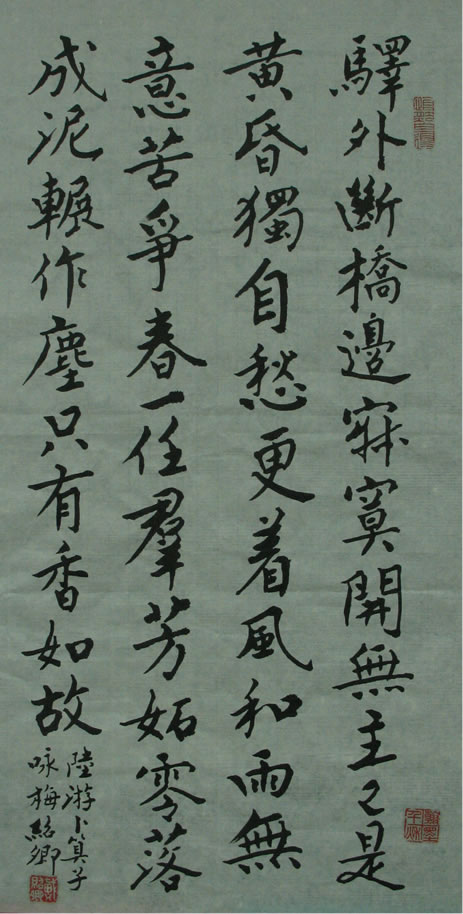 驛外斷橋邊寂寞開無主已是
黄昏獨自愁更着風和雨無
意苦爭春一任羣芳妬零落
成泥輾作塵只有香如故
陸游卜算子
咏梅紹卿